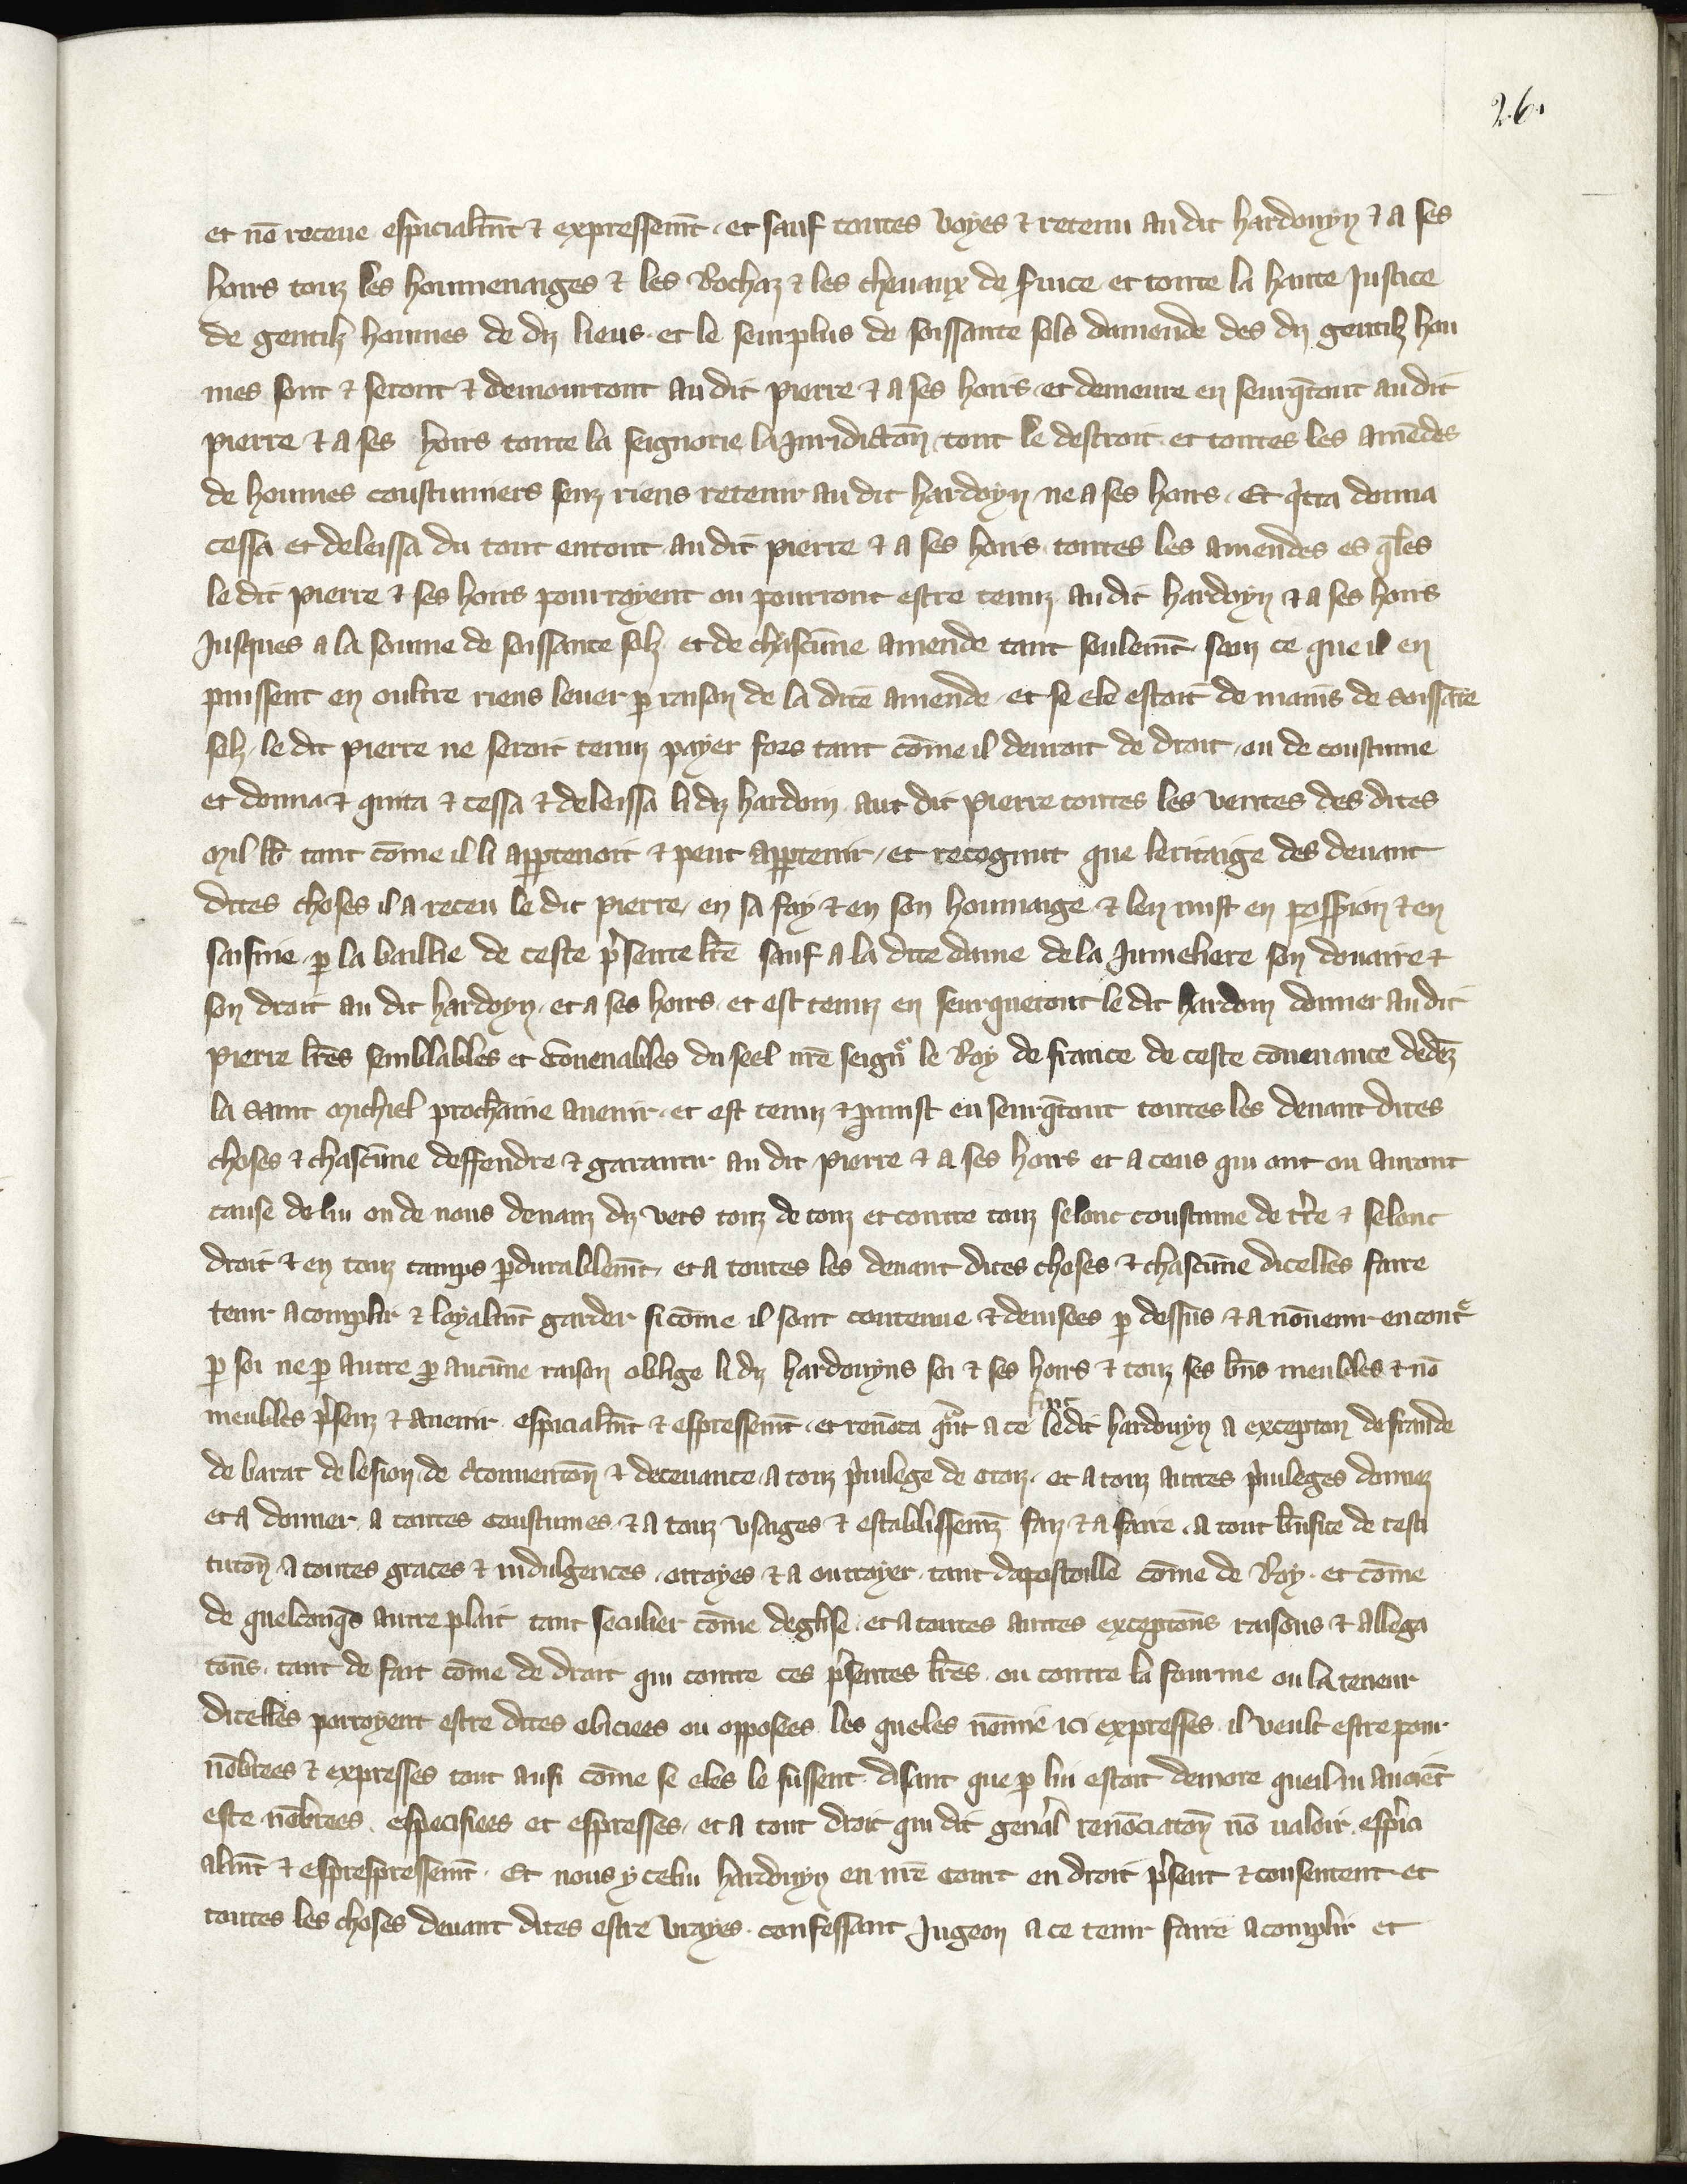 26.
et nō receue espicialmt̄ & expressemt̄. et sauf toutes voyes & retenu au dit hardouyn & a ses
hoirs touz les hommenaiges & les Rochaz & les cheuaux de suice et toute la haute Justice
de gentilz hommes de diz lieus. et le seurplus de soissante sols damende des diz gentilz hom
mes sont & seront & demourront au dit pierre & a ses hoirs. et demeure en seurq̄tout au dit
pierre & a ses hoirs toute la seignorie la Juridictōn tout le destroit et toutes les amēdes
de hommes coustumiers senz riens retenir au dit hardoyn ne a ses hoirs. Et q̄tta donna
cessa et deleissa du tout entout au dit pierre & a ses hoirs toutes les amendes es q̄les
le dit pierre & ses hoirs pourroyent ou pourront estre tenuz au dit hardoyn & a ses hoirs
Jusques a la somme de soissante solz et de chascūne amende tant seulemt̄ sanz ce que il en
puissent en oultre riens leuer p̄ raison de la dite amende. et se ele estoit de mains de soissāte
solz. le dit pierre ne seroit tenuz payer fors tant cōme il deuroit de droit. ou de coustume
et donna & quita & cessa & deleissa li diz hardoin aut dit pierre toutes les ventes des dites
mil lb̄ tant cōme il li app̄tenoit & peut app̄tenir. et recognut que leritaige des deuant
dites choses il a receu le dit pierre en sa foy & en son hommaige & len mist en possion & en
saisine p̄ la baillie de ceste p̄sente lr̄e sauf a la dite dame de la Jumeliere son douaire &
son droit au dit hardoyn. et a ses hoirs. et est tenuz en seurquetout le dit hardoin donner au dit
pierre lr̄es semblables et Couenables du seel nr̄e seignr̄ le Roy de france de ceste cōuenance dedēz
la saint michiel prochaine auenir. et est tenuz & p̄mist en seurq̄tout toutes les deuant dites
choses & chascūne deffendre & garantir au dit pierre & a ses hoirs et a ceus qui ont ou auront
cause de lui ou de nous deuanz diz vers touz de touz et contre touz selonc coustume de tr̄e & selonc
droit & en touz tamps p̄durablemt̄. et a toutes les deuant dites choses & chascūne dicelles faire
tenir acomplir & loyalmt̄ garder si cōme il sont contenue & deuisees p̄ dessus & a nōuenir encontr̄
p̄ soi ne p̄ autre p̄ aucūne raison oblige li diz hardouyns soi & ses hoirs & touz ses bn̄s meubles & nō
meubles p̄senz & auenir espicialmt̄ & espressemt̄. et renōca q̄nt a ce fait le dit hardouyn a excepcion de fraude
de barat de lesion de circonuentōn & deceuance a touz p̄iuilege de croiz. et a touz autres p̄iuileges donnez
et a donner a toutes coustumes & a touz vsaiges & establissemz̄ faiz & a faire. a tout bn̄fice de resti
tucōn a toutes graces & indulgences ottroyes & a outroyer tant dapostoille cōme de Roy. et cōme
de quelconq̄s autre plait tant seculier cōme deglise. et a toutes autres exceptōns raisons & allega
tōns. tant de fait cōme de droit qui contre ces p̄sentes lr̄es. ou contre la fourme ou la teneur
dicelles porroyent estre dites obiciees ou opposees. les queles nōmie ici expresses. il veult estre pour
nōbrees & expresses tout ausi cōme se eles le fussent. disant que p̄ lui estoit demore queil ni auoiēt
este nōbrees. especifiees et espresses. et a tout droit qui dit gen̄al renōciatōn nō ualoir. esp̄ici
almt̄ & esprespressemt̄. Et nous ycelui hardouyn en nr̄e court en droit p̄sent & consentent et
toutes les choses deuant dites estre vrayes. confessant Jugeon a ce tenir faire acomplir et